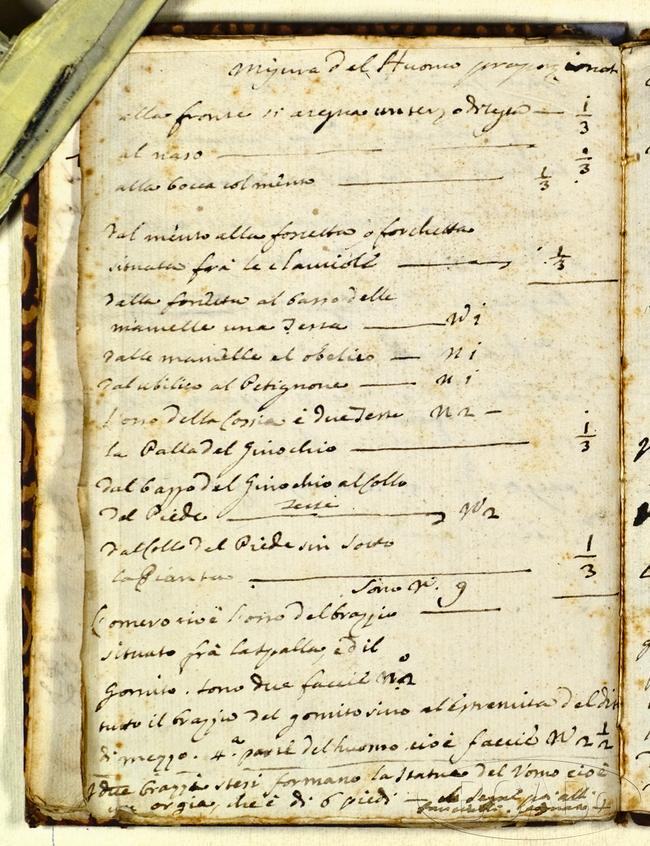 Misura del Huomo proporzionat
alla fronte si asegna un terzo di testa — 1/3
al naso — 1/3
alla bocca col mento — 1/3
dal mento alla forcetta o forchetta
situata frà le clavicole — 1/3
dalla forcetta al basso delle
mamelle una Testa — N 1
dalle mamelle al obelico — N 1
dal ubilico al Petignone — N 1
l'osso della Coscia è due Teste N 2 —
la Palla del Ginochio — 1/3
dal basso del Ginochio al Collo
del Piede — Teste — N 2
dal Collo del Piede sin sotto
la Pianta — 1/3
sono N. 9
l'omero cioè l'osso del brazzio
situato frà la spalla, ed il
Gomito. sono due faccie N.º 2
tutto il brazzio del gomito sino al estremita del dit
di mezzo. 4.ª parte del huomo cioè faccie N 2 1/2
due brazzi stesi formano la statua del Vomo cioè
orgia, che è di 6 piedi